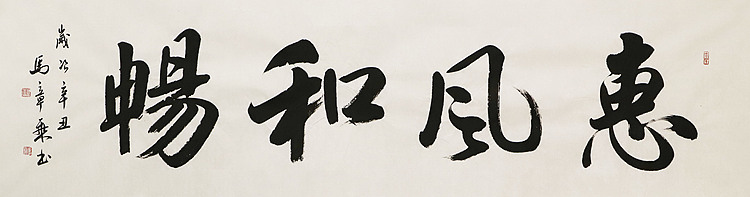 惠風和暢
歲次辛丑
馬章乘书